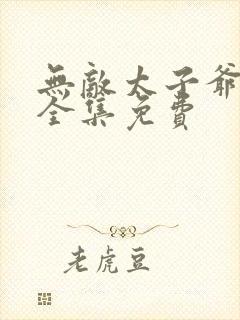 無敵太子爺
全集免費
老虎豆